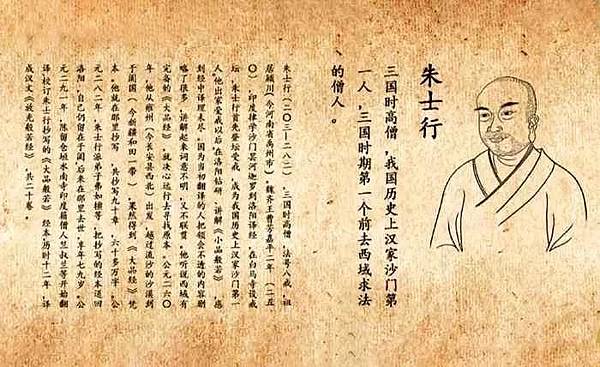 朱士行
三国时高僧，我国历史上汉家沙门第
一人，三国时期第一个前去西域求法
的僧人。
朱士行（二〇三-二八二），三国时高僧，法号八戒，祖
居颍川（今河南省禹州市）。魏齐王曹芳嘉平二年（二五
〇），印度律学沙门昙河迦罗到洛阳译经，在白马寺设戒
坛，朱士行首先登坛受戒，成为我国历史上汉家沙门第一
人。他出家受戒以后在洛阳钻研、讲解《小品般若》，感
到经中译理未尽，因为当初翻译的人把领会不透的内容删
略了很多，讲解起来词意不明，又不联贯。他听说西域有
完备的《大品经》，就决心远行去寻找原本。公元二六〇
年，他从雍州（今长安县西北）出发，越过流沙的沙漠到
于阗国（今新疆和田一带），果然得到《大品经》凭
本。他就在那里抄写，共抄写九十章，六十多万字。公
元二八二年，朱士行派弟子弗如檀等，把抄写的经本送回
洛阳，自己仍留在于阗，后来在那里去世，享年七九岁。公
元二九一年，陈留仓垣水南寺印度籍僧人竺叔兰等开始翻
译、校订朱士行抄写的《大品般若》经本，历时十二年，译
成汉文《放光般若经》，共二十卷。